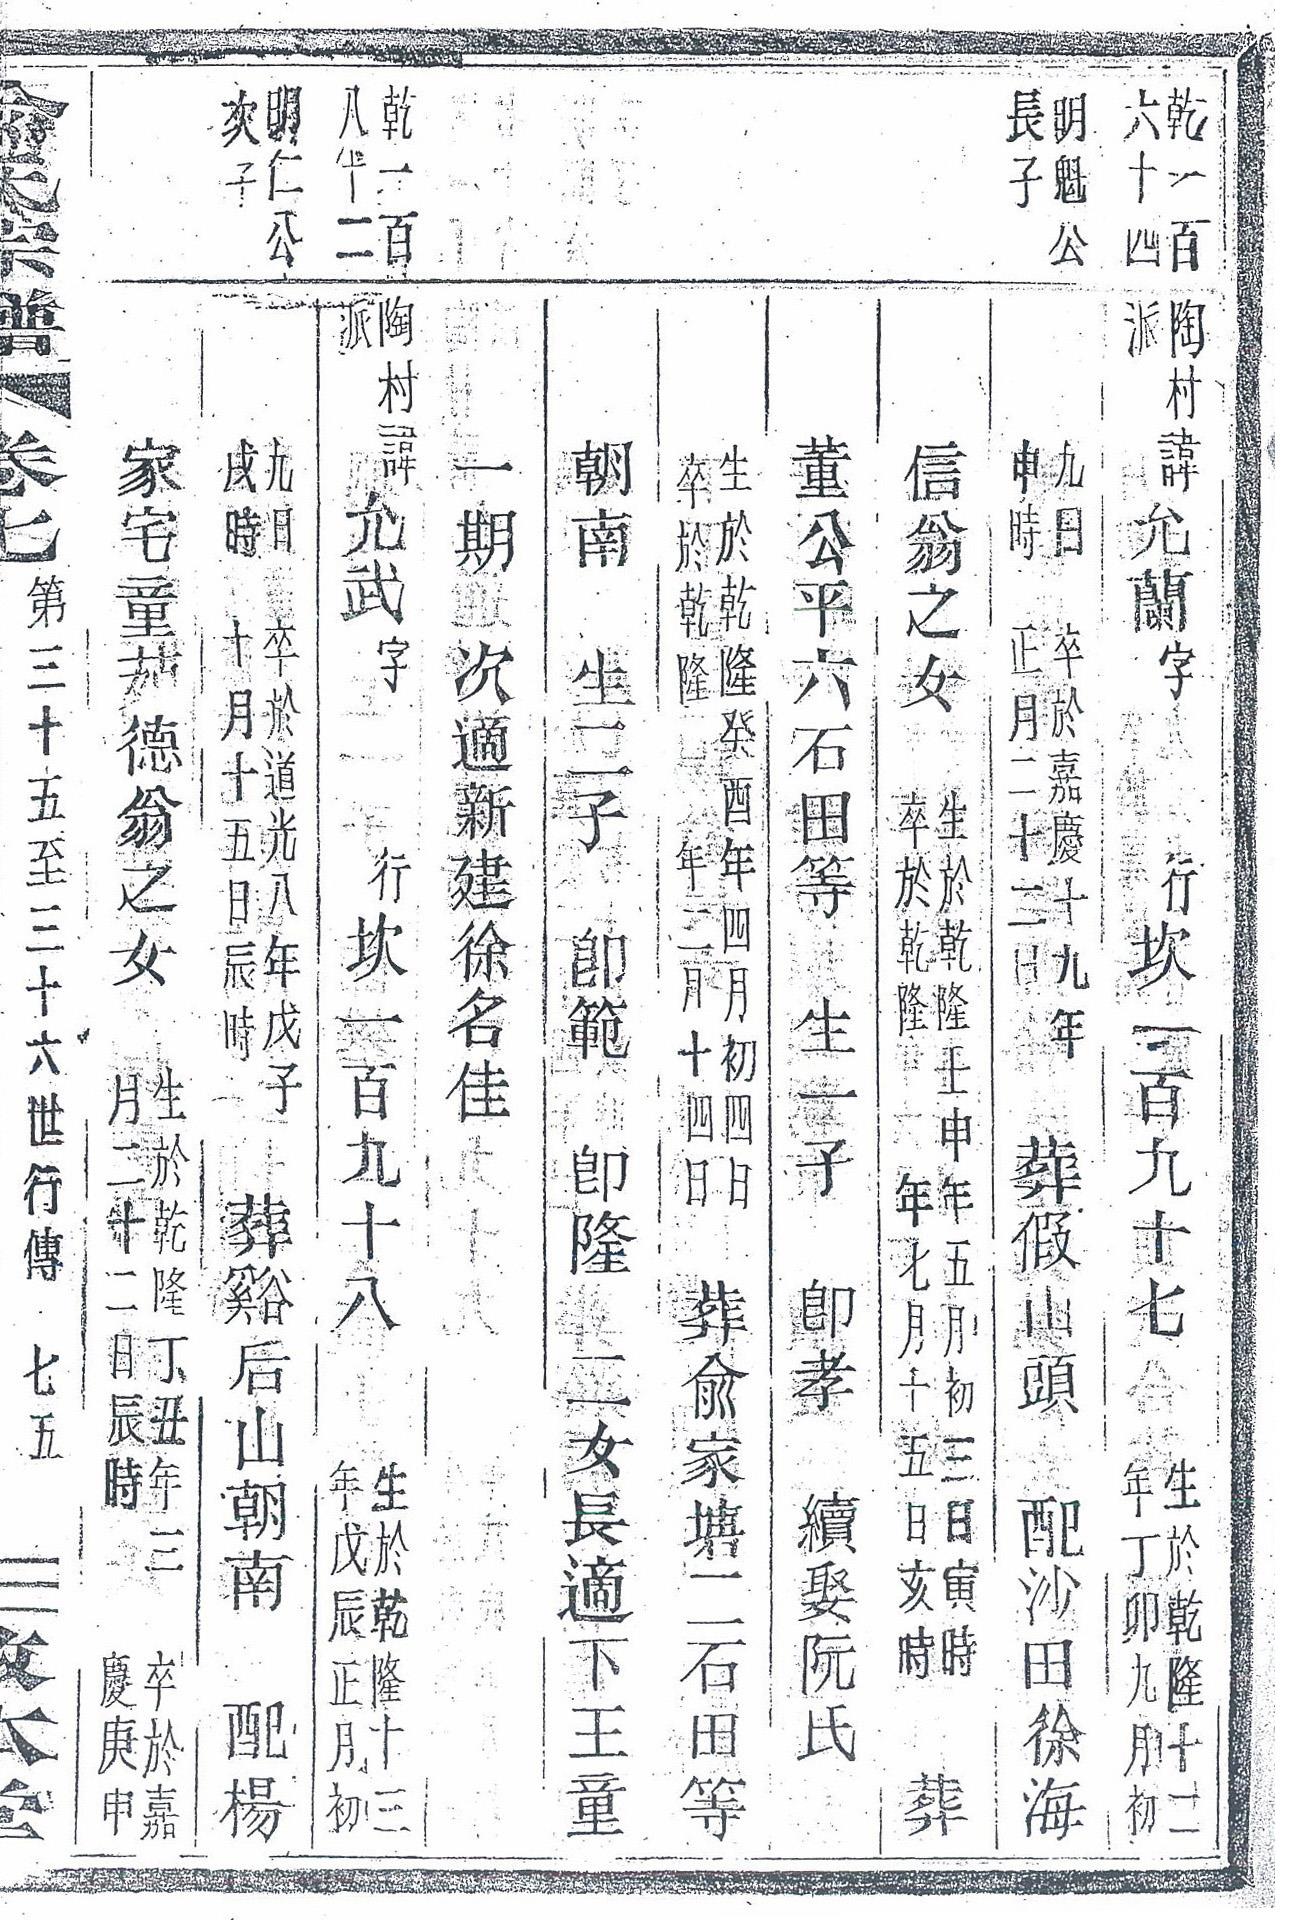 乾一百
六十四
明魁公
長子
陶村
派
諱允蘭字
行坎一百九十七
生於乾隆十二
年丁卯九月初
九日
申時
卒於嘉慶十九年
正月二十二日
葬假山頭
配沙田徐海
信翁之女
生於乾隆壬申年五月初三日寅時
卒於乾隆
年七月十五日亥時
葬
董公平六石田等
生一子
卽孝
續娶阮氏
生於乾隆癸酉年四月初四日
卒於乾隆
年三月十四日
葬俞家塘二石田等
朝南
生二子
卽範
卽隆
二女長適下王童
一期
次適新建徐名佳
乾一百
八十二
明仁公
次子
陶村
派
諱允武字
行坎一百九十八
生於乾隆十三
年戊辰正月初
九日
戌時
卒於道光八年戊子
十月十五日辰時
葬谿后山朝南
配楊
家宅童茄德翁之女
生於乾隆丁丑年三
月二十二日辰時
卒於嘉
慶庚申
俞氏宗譜
卷七
第三十五至三十六世行傳
七五
三敬本堂